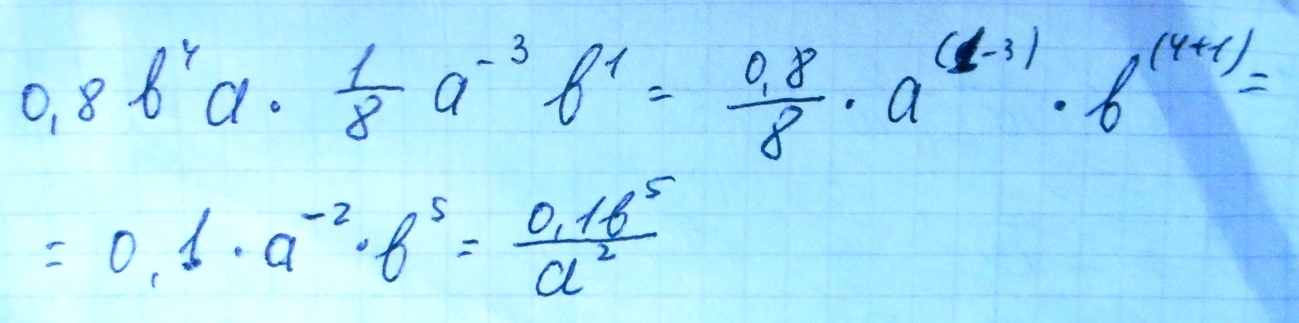 0,8 b⁴a · 1/8 a⁻³ b¹ = 0,8/8 · a⁽¹⁻³⁾ · b⁽⁴⁺¹⁾ =
= 0,1 · a⁻² · b⁵ = 0,1b⁵/a²